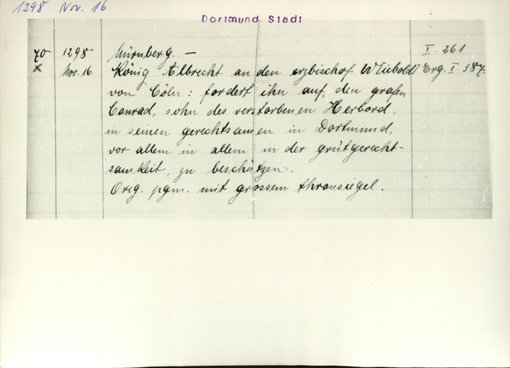 1298 Nov. 16
Dortmund Stadt
70 1298 Nürnberg — I. 261
X Nov. 16. König Albrecht an den erzbischof Wicbold Erg. I 387
von Cöln: fordert ihn auf, den grafen
Conrad, sohn des verstorbenen Herbord,
in seinen gerechtsamen in Dortmund,
vor allem in allem in der grütgerecht-
samkeit, zu beschützen.
Orig. pgm. mit grossem thronsiegel.